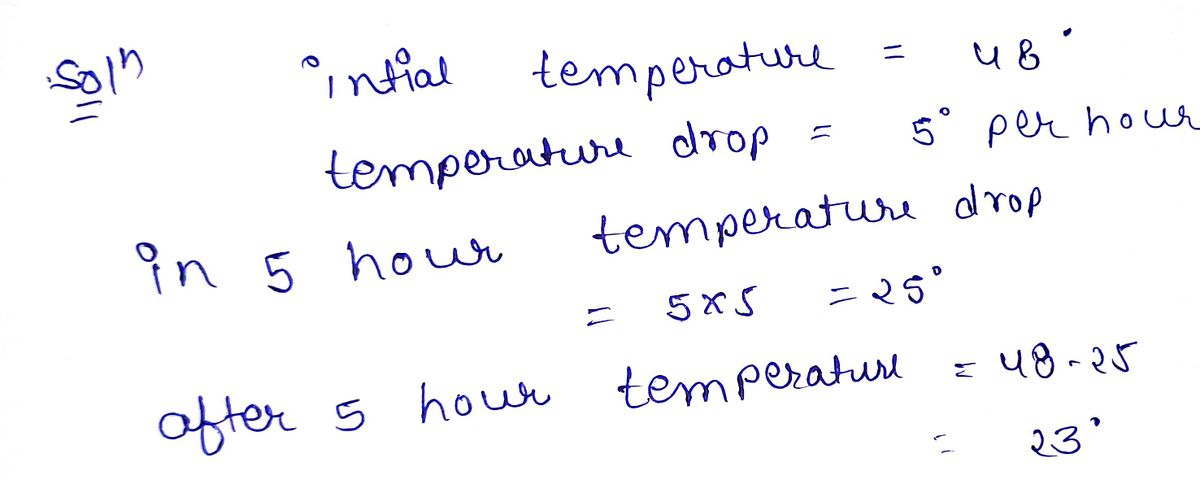 Soln intial temperature = 48°
temperature drop = 5° per hour
in 5 hour temperature drop
= 5×5 = 25°
after 5 hour temperature = 48-25
= 23°